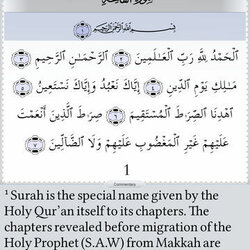 سُورَةُ الْفَاتِحَةِ
بِسْمِ اللَّهِ الرَّحْمَٰنِ الرَّحِيمِ ١
الْحَمْدُ لِلَّهِ رَبِّ الْعَالَمِينَ ٢ الرَّحْمَٰنِ الرَّحِيمِ ٣
مَالِكِ يَوْمِ الدِّينِ ٤ إِيَّاكَ نَعْبُدُ وَإِيَّاكَ نَسْتَعِينُ ٥
اهْدِنَا الصِّرَاطَ الْمُسْتَقِيمَ ٦ صِرَاطَ الَّذِينَ أَنْعَمْتَ
عَلَيْهِمْ غَيْرِ الْمَغْضُوبِ عَلَيْهِمْ وَلَا الضَّالِّينَ ٧
1
Commentary
¹ Surah is the special name given by the
Holy Qur'an itself to its chapters. The
chapters revealed before migration of the
Holy Prophet (S.A.W) from Makkah are